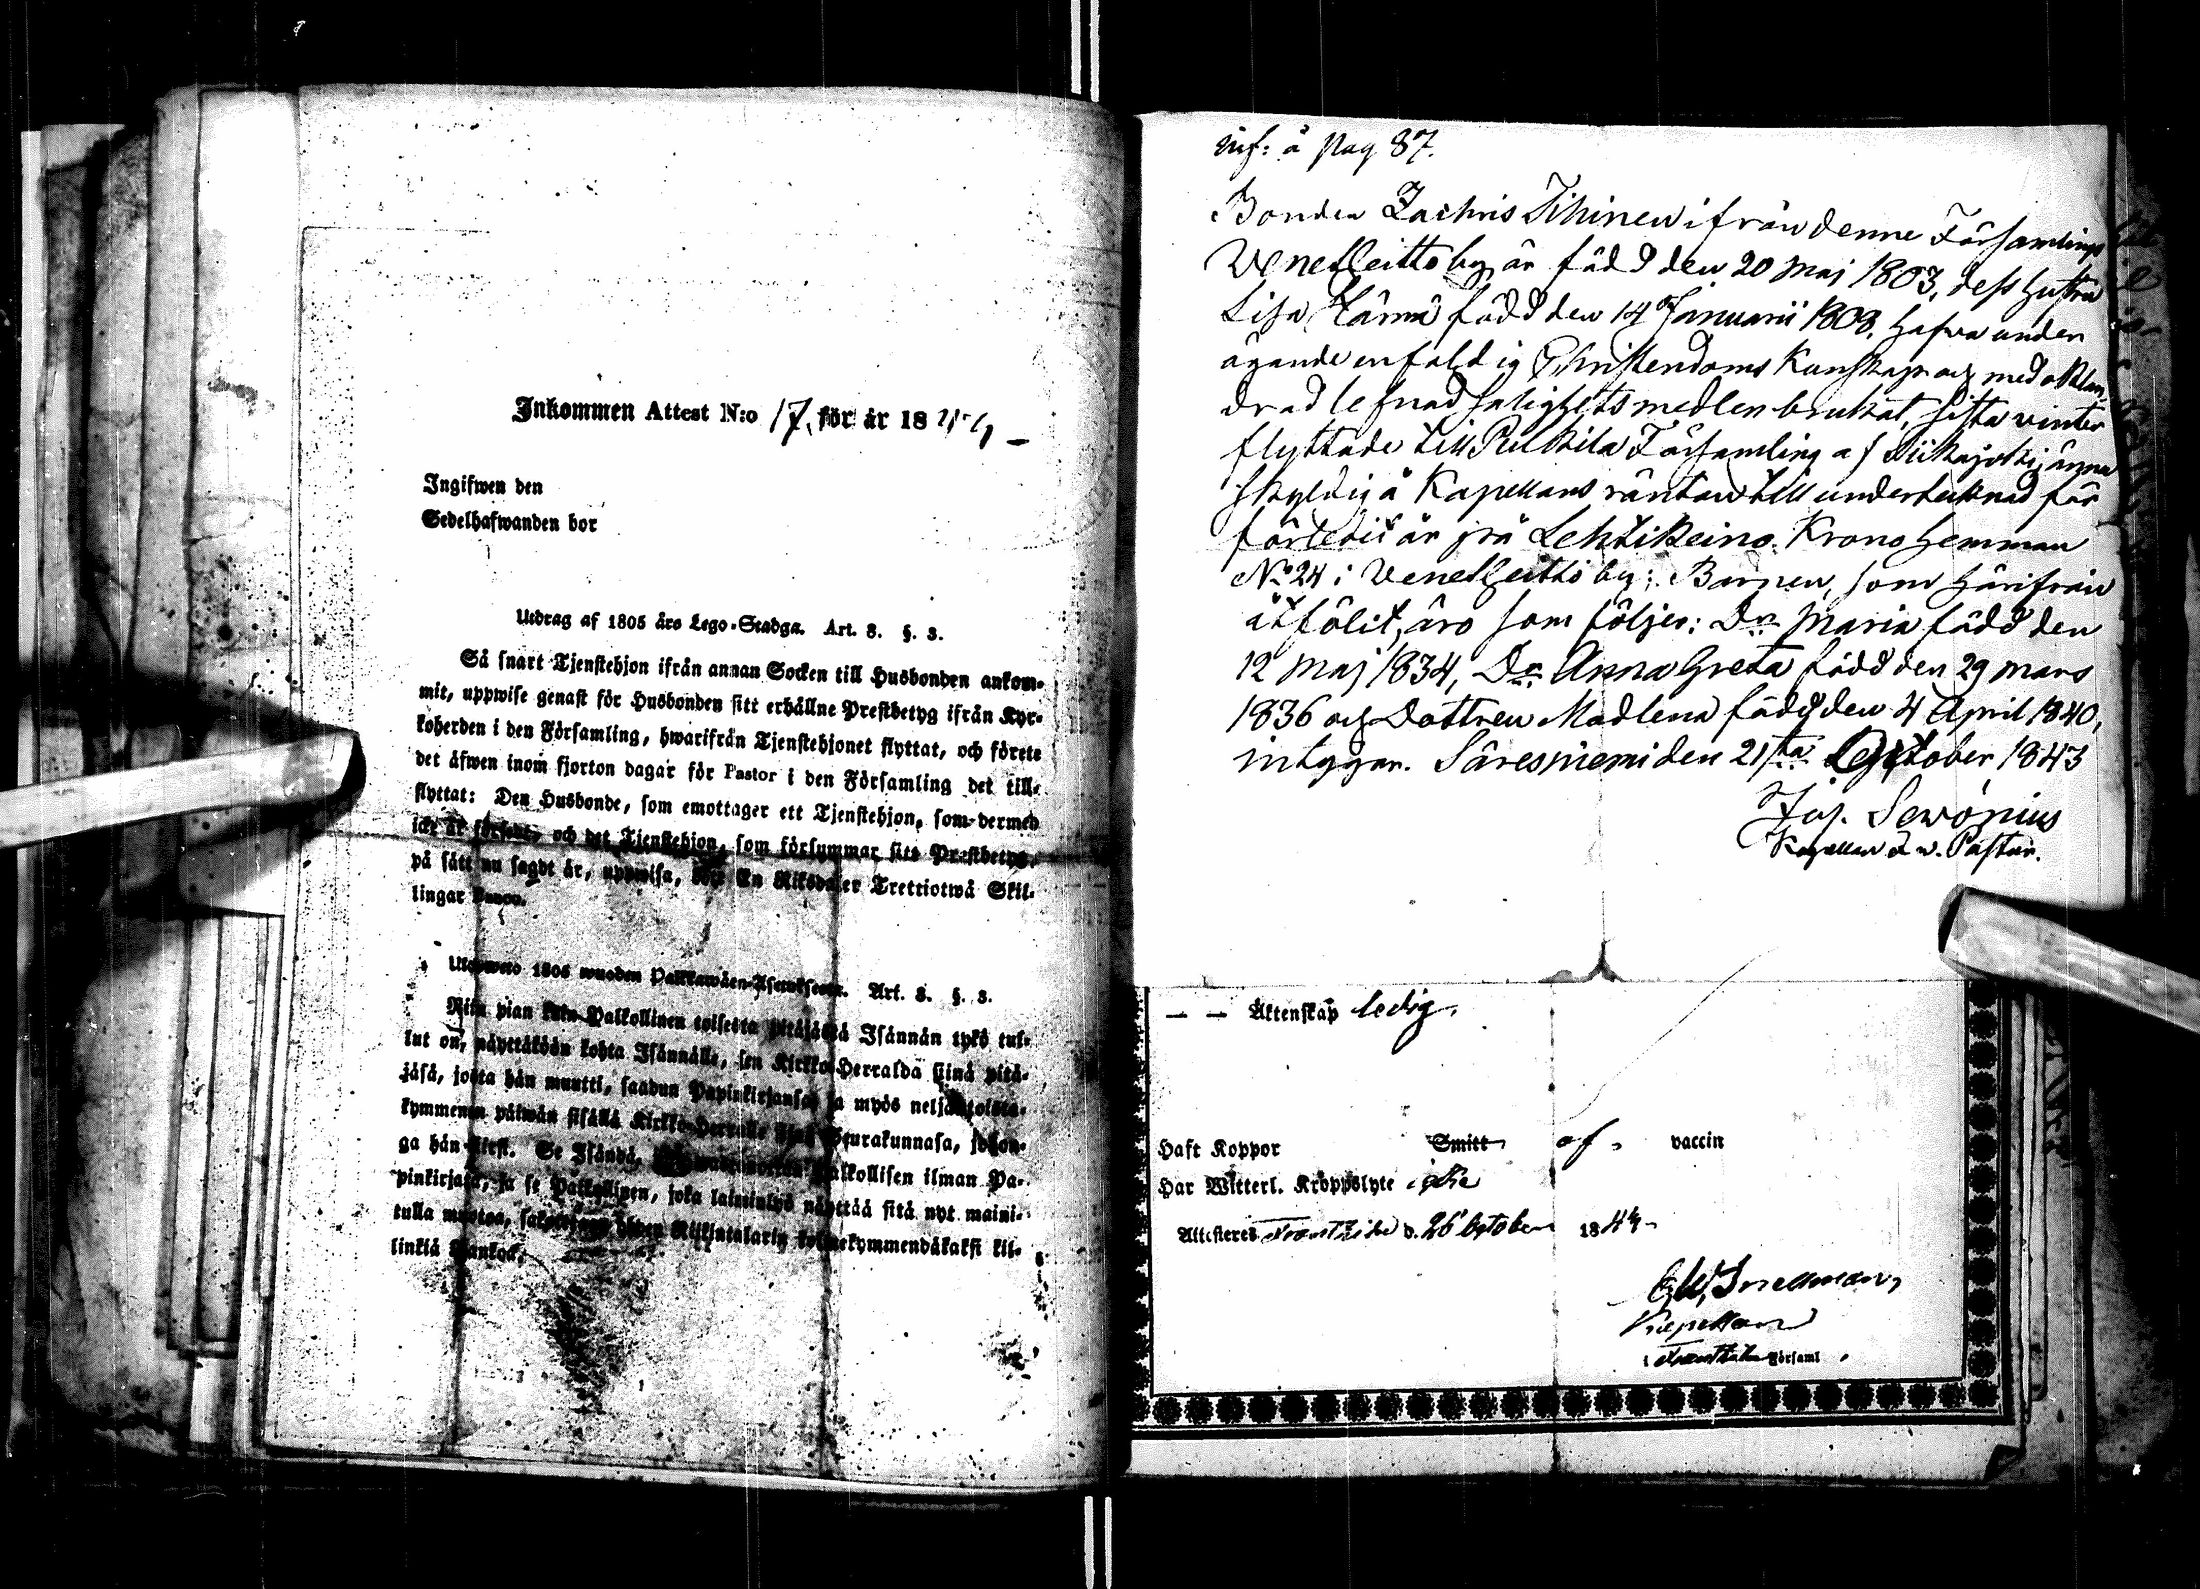 Inkommen Attest N:o 17, för år 1844
Ingifwen den
Sedelhafwanden bor
Utdrag af 1805 års Lego-Stadga. Art. 3. §. 3.
Så snart Tjenstehjon ifrån annan Socken till Husbonden ankom-
mit, uppwise genast för Husbonden sitt erhållne Prestbetyg ifrån Kyr-
koherden i den Församling, hwarifrån Tjenstehjonet flyttat, och förete
det äfwen inom fjorton dagar för Pastor i den Församling det till-
flyttat: Den Husbonde, som emottager ett Tjenstehjon, som dermed
icke är försedt, och det Tjenstehjon, som försummar sitt Prestbetyg,
på sätt nu sagdt är, uppwisa, böte En Riksdaler Trettiotwå Skil-
lingar Banco.
1805 wuoden Palkkawäen-Asetuksesta. Art. 3. §. 3.
Niin pian kuin Palkollinen toisesta pitäjästä Isännän tykö tul-
lut on, näyttäköön kohta Isännälle, sen Kirkko-Herralda siinä pitä-
jäsä, josta hän muutti, saadun Papinkirjansa, ja myös neljäntoista-
kymmenen päiwän sisällä Kirkko-Herralle siinä Seurakunnasa, johon-
ga hän siirsi. Se Isändä, palkollisen ilman Pa-
pinkirjata, ja se Palkollinen, joka laiminlyö näyttää sitä nyt maini-
tulla muotoa, Riikintalarin kolmekymmendäkaksi kil-
linkiä Bankoa.
inf: å pag 87.
Bonden Zachris Tihinen ifrån denne Församlings
Venetheitto by, är född den 20 Maj 1803, dess hustru
Lisa född den 14 Januarii 1808, hafva under
ägande enfaldig Christendoms Kunskap och med oklan-
drad lefnad salighets medlen brukat, sista vinter
flyttade till Pulkila Församling af Siikajoki; ännu
skyldig å Kapellans räntan till undertecknad för
förledit år på Lehtikeino Krono hemman
No 24 i Venetheitto by; Barnen, som härifrån
åtföljt, äro som följer: Dr Maria född den
12 Maj 1834, Dr Anna Greta född den 29 Mars
1836 och Dottren Madlena född den 4 April 1840,
intygar. Säresniemi den 21sta October 1843
Jos. Sewonius
Kapellan v. Pastor.
— — Äktenskap ledig.
Haft Koppor Smitt af vaccin
Har Witterl. Kroppslyte icke
Attesteres d. 26 October 184
Kapellan
i Församl.